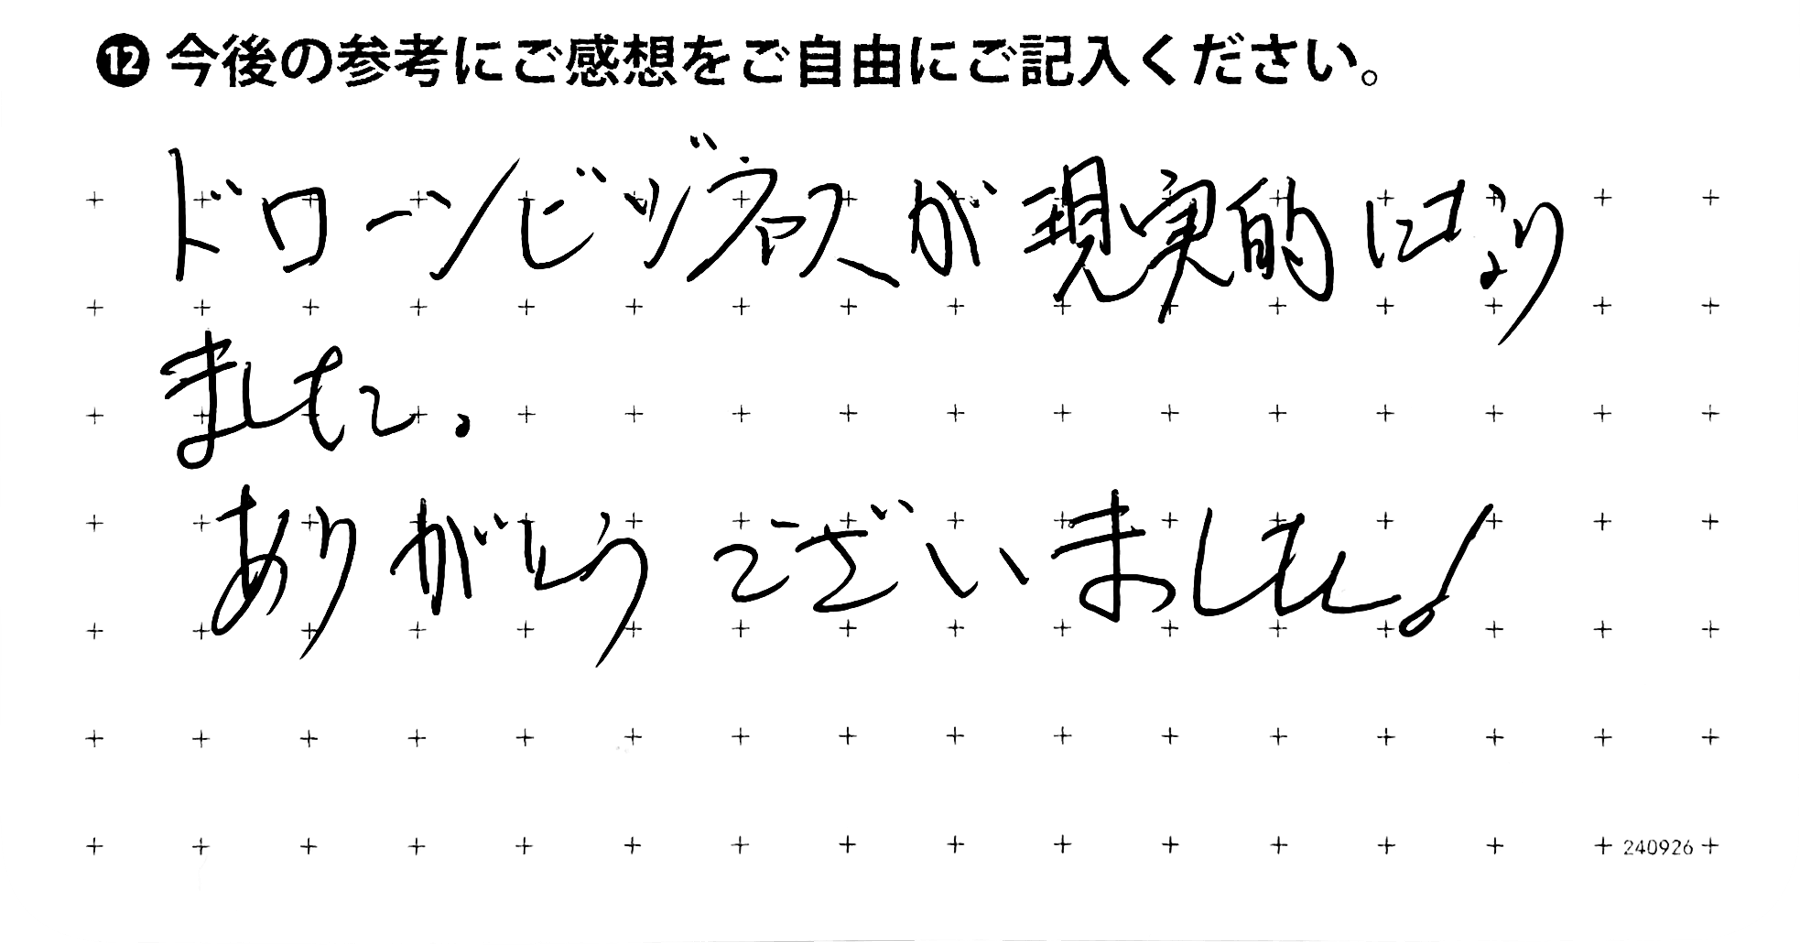 ⓬ 今後の参考にご感想をご自由にご記入ください。
ドローンビジネスが現実的になり
ました。
ありがとうございました!
240926